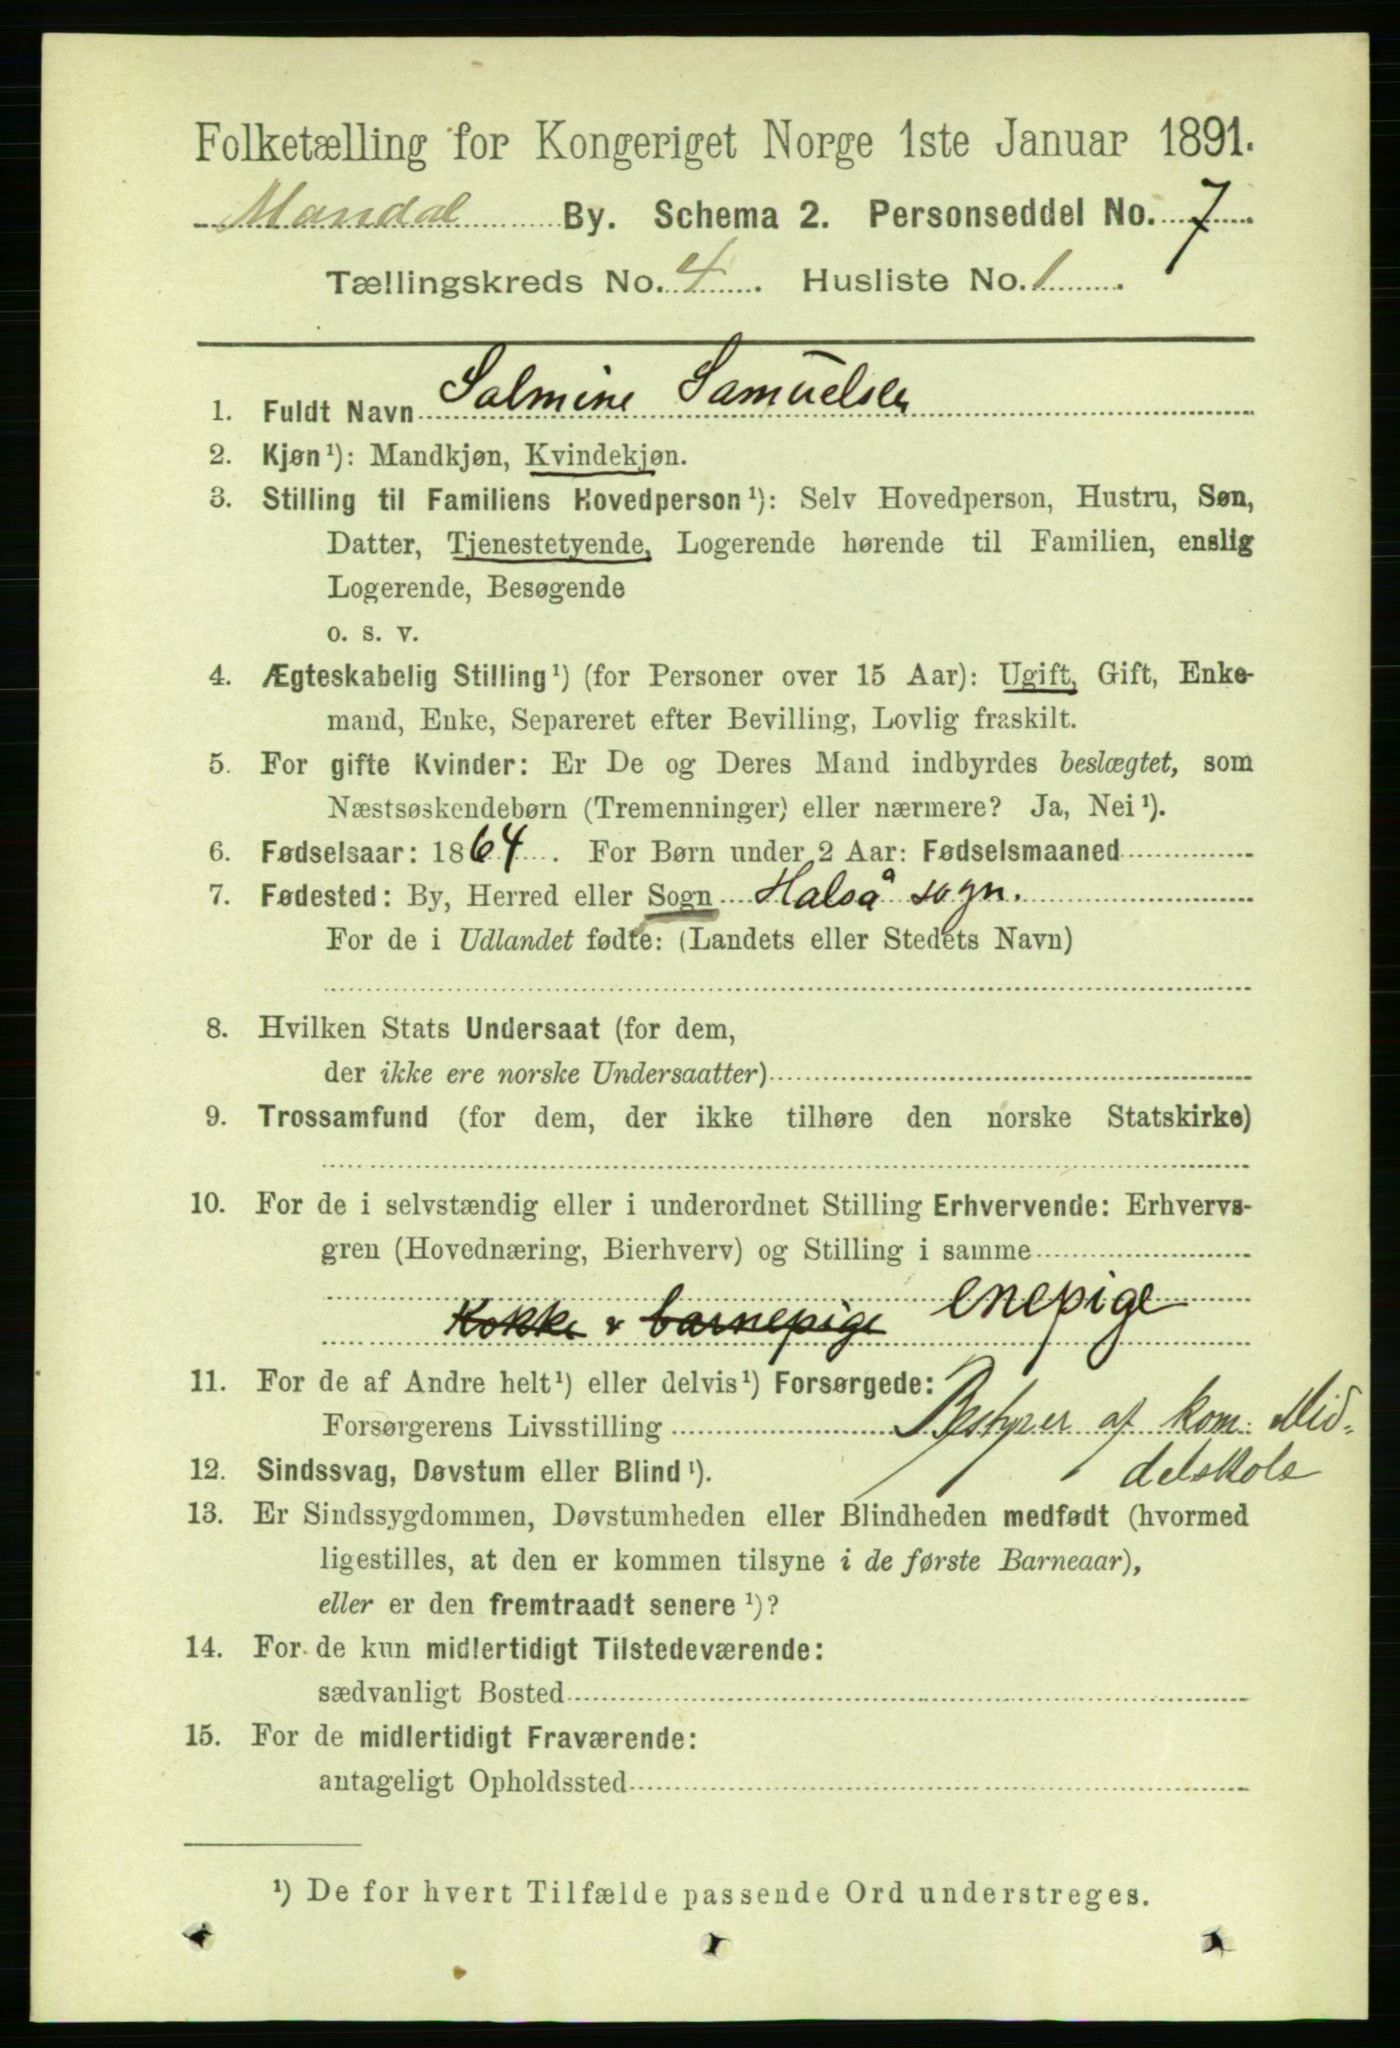 Folketælling for Kongeriget Norge 1ste Januar 1891.
Mandal By. Schema 2. Personseddel No. 7.
Tællingskreds No. 4. Husliste No. 1.
1. Fuldt Navn Salmine Samuelsen
2. Kjøn ¹): Mandkjøn, Kvindekjøn.
3. Stilling til Familiens Hovedperson ¹): Selv Hovedperson, Hustru, Søn,
Datter, Tjenestetyende, Logerende hørende til Familien, enslig
Logerende, Besøgende
o. s. v.
4. Ægteskabelig Stilling ¹) (for Personer over 15 Aar): Ugift, Gift, Enke-
mand, Enke, Separeret efter Bevilling, Lovlig fraskilt.
5. For gifte Kvinder: Er De og Deres Mand indbyrdes beslægtet, som
Næstsøskendebørn (Tremenninger) eller nærmere? Ja, Nei ¹).
6. Fødselsaar: 1864. For Børn under 2 Aar: Fødselsmaaned
7. Fødested: By, Herred eller Sogn Halså sogn.
For de i Udlandet fødte: (Landets eller Stedets Navn)
8. Hvilken Stats Undersaat (for dem,
der ikke ere norske Undersaatter)
9. Trossamfund (for dem, der ikke tilhøre den norske Statskirke)
10. For de i selvstændig eller i underordnet Stilling Erhvervende: Erhvervs-
gren (Hovednæring, Bierhverv) og Stilling i samme
Kokke & barnepige enepige
11. For de af Andre helt ¹) eller delvis ¹) Forsørgede:
Forsørgerens Livsstilling Bestyrer af kom. Mid-
delskole
12. Sindssvag, Døvstum eller Blind ¹).
13. Er Sindssygdommen, Døvstumheden eller Blindheden medfødt (hvormed
ligestilles, at den er kommen tilsyne i de første Barneaar),
eller er den fremtraadt senere ¹)?
14. For de kun midlertidigt Tilstedeværende:
sædvanligt Bosted
15. For de midlertidigt Fraværende:
antageligt Opholdssted
¹) De for hvert Tilfælde passende Ord understreges.